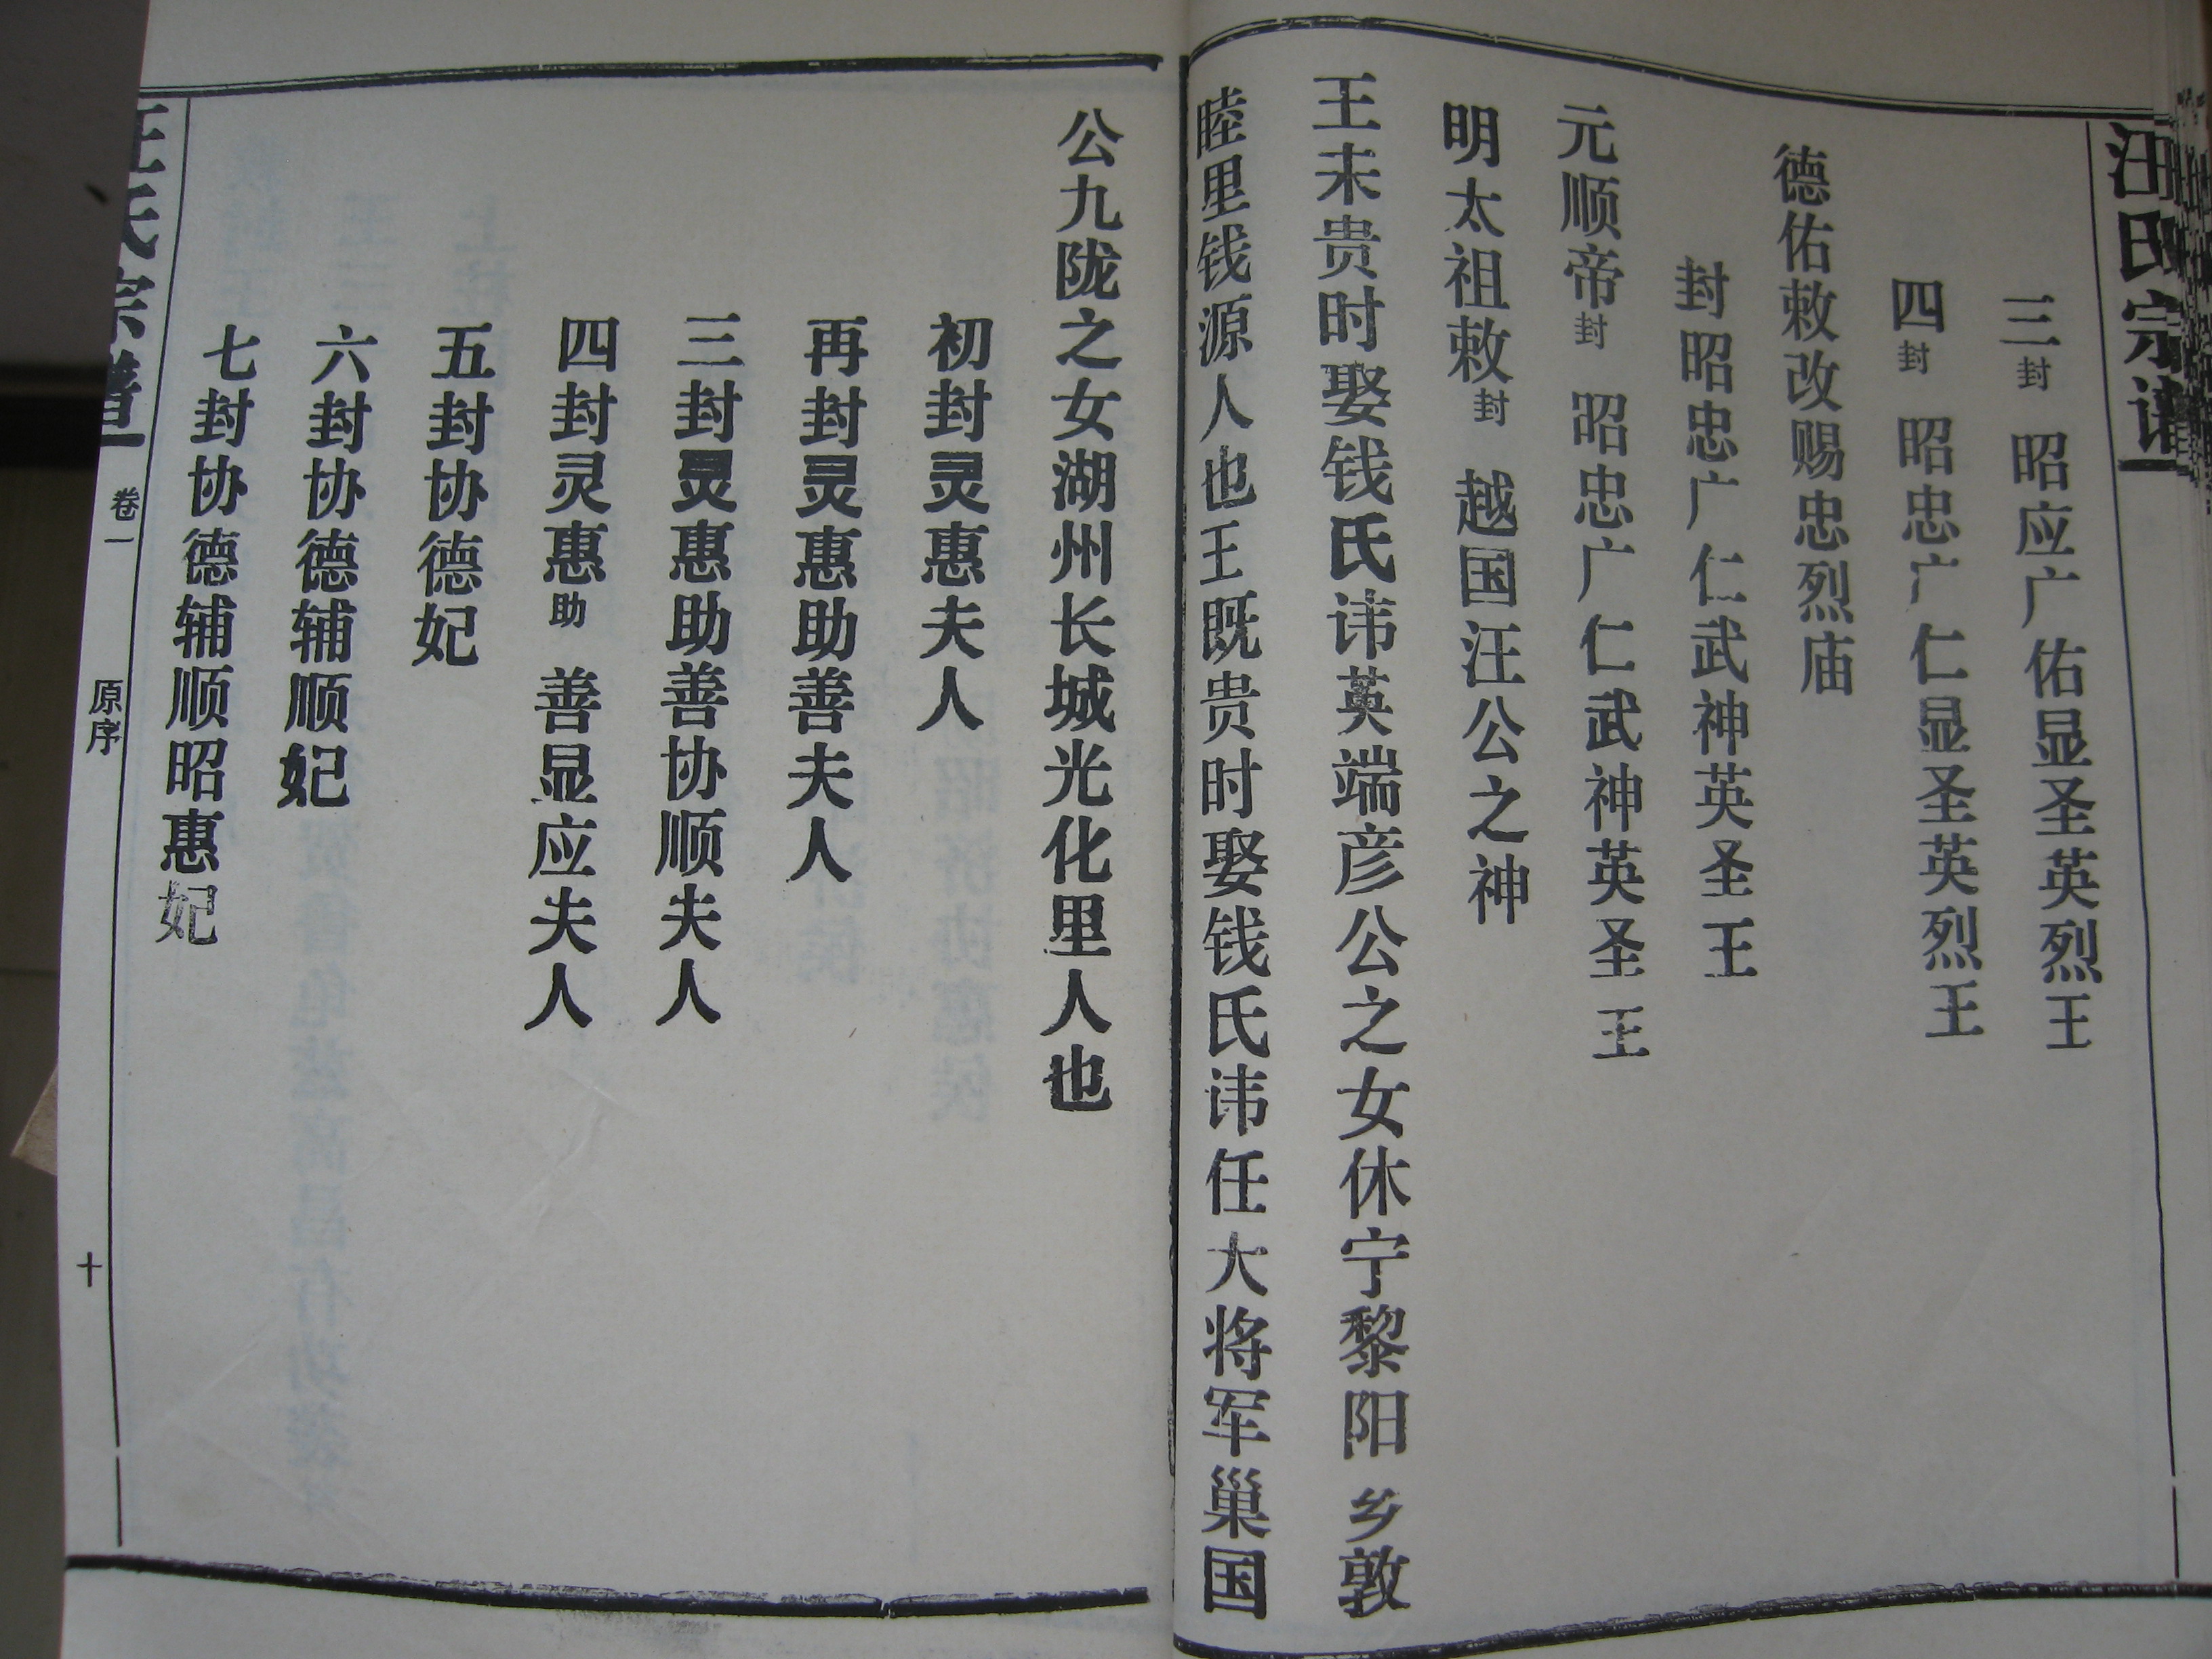 汪氏宗谱
三封 昭应广佑显圣英烈王
四封 昭忠广仁显圣英烈王
德佑敕改赐忠烈庙
封昭忠广仁武神英圣王
元顺帝封 昭忠广仁武神英圣王
明太祖敕封 越国汪公之神
王未贵时娶钱氏讳英端彦公之女休宁黎阳乡敦
睦里钱源人也王既贵时娶钱氏讳任大将军巢国
公九陇之女湖州长城光化里人也
初封灵惠夫人
再封灵惠助善夫人
三封灵惠助善协顺夫人
四封灵惠助 善显应夫人
五封协德妃
六封协德辅顺妃
七封协德辅顺昭惠妃
汪氏宗谱 卷一 原序 十